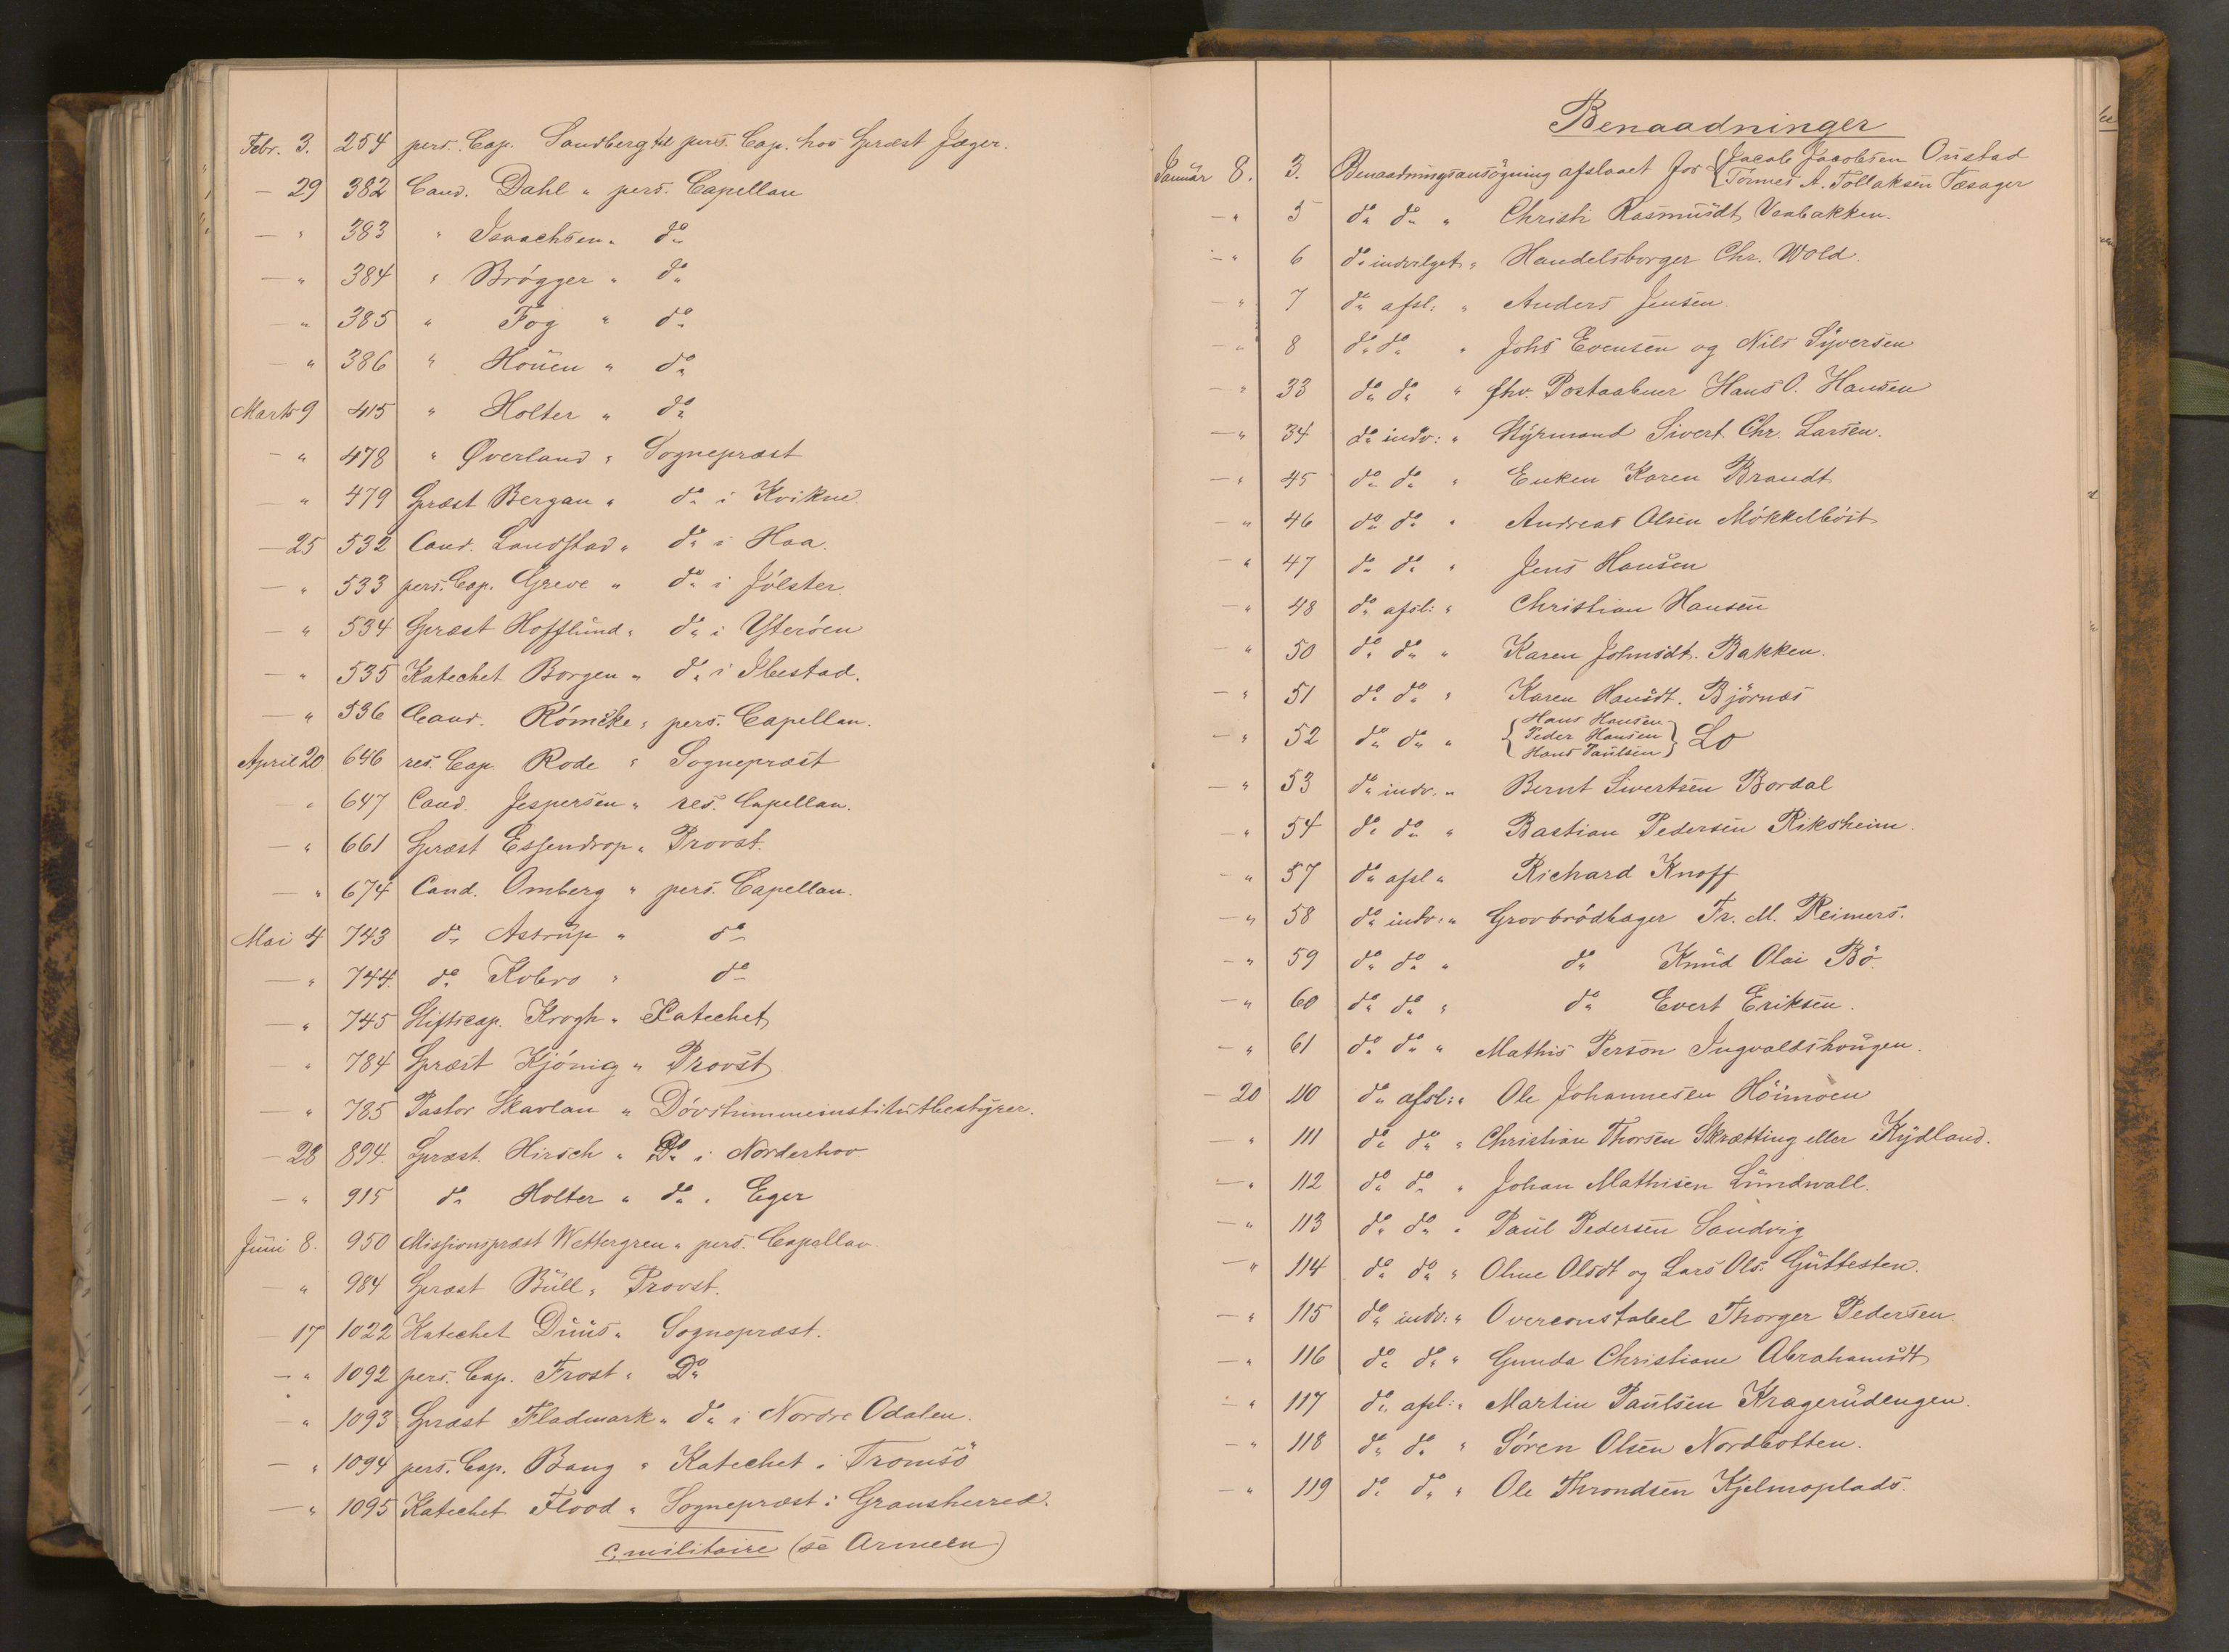 Febr. 3. 254 pers. Cap. Sandberg til pers. Cap. hos Spræst Jæger.
— 29 382 Cand. Dahl " pers. Capellan
— " 383 " Isaachsen " do
— " 384 " Brøgger " do
— " 385 " Fog " do
— " 386 " Houen " do
Marts 9 415 " Holter " do
— " 478 " Øverland " Sognepræst
— " 479 Spræst Bergan " do i Kvikne
— 25 532 Cand. Landstad " do i Haa.
— " 533 pers. Cap. Greve " do i Jölster.
— " 534 Spræst Hofflund " do i Ytteröen
— " 535 Katechet Borgen " do i Ibestad.
— " 536 Cand. Römcke " pers. Capellan.
April 20. 646 res. Cap. Rode " Sognepræst
— " 647 Cand. Jespersen " res. Capellan.
— " 661 Spræst Essendrop " Provst.
— " 674 Cand. Omberg " pers. Capellan.
Mai 4 743 do Astrup " do
— " 744. do Kobro " do
— " 745 Stiftscap. Krogh " Katechet
— " 784 Spræst Kjönig " Provst
— " 785 Pastor Skavlan " Dövstummeinstitutbestyrer.
— 28 894. Spræst. Hirsch " Do i Norderhov
— " 915 do Holter " do " Eger
Juni 8. 950 Missionspræst Wettergren " pers. Capellan.
— " 984 Spræst Bull " Provst.
— 17 1022 Katechet Duus " Sognepræst.
— " 1092 pers. Cap. Frost " Do
— " 1093 Spræst Fladmark " do i Nordre Odalen.
— " 1094 pers. Cap. Bang " Katechet i Tromsö
— " 1095 Katechet Flood " Sognepræst i Gransherred.
c, militaire (se Armeen)
Benaadninger
Januar 8. 3. Benaadningsansögning afslaaet for { Jacob Jacobsen Onstad
Tönnes A. Tollaksen Tæsager
— " 5 do do " Christi Rasmusdt Venbakken.
— " 6 do indvilget " Handelsborger Chr. Wold.
— " 7 do afsl: " Anders Jensen
— " 8 do do " Johs Evensen og Nils Syversen
— " 33 do do " fhv. Postaabner Hans O. Hansen
— " 34 do indv: " Styrmand Sivert Chr. Larsen.
— " 45 do do " Enken Karen Brandt
— " 46 do do " Andreas Olsen Mökkelböst
— " 47 do do " Jens Hansen
— " 48 do afsl: " Christian Hansen
— " 50 do do " Karen Johnsdt. Bakken.
— " 51 do do " Karen Hansdt. Björnæs
— " 52 do do " { Hans Hansen
Peder Hansen
Hans Paulsen } Lo
— " 53 do indv. " Bernt Sivertsen Bordal
— " 54 do do " Bastian Pedersen Riksheim.
— " 57 do afsl " Richard Knoff
— " 58 do indv: " Grovbrödbager Fr. M. Reimers.
— " 59 do do " do Knud Olai Bö
— " 60 do do " do Evert Eriksen.
— " 61 do do " Mathis Person Ingvaldshaugen.
— 20 110 do afsl: " Ole Johannesen Höimoen
— " 111 do do " Christian Thorsen Skrætting eller Kydland.
— " 112 do do " Johan Mathisen Lundwall.
— " 113 do do " Paul Pedersen Sandvig
— " 114 do do " Oline Olsdt og Lars Ols. Guttesten.
— " 115 do indv: " Overconstabel Thorger Pedersen.
— " 116 do do " Gunda Christiane Abrahamsdt
— " 117 do afsl: " Martin Paulsen Kragerudengen.
— " 118 do do " Sören Olsen Nordbotten.
— " 119 do do " Ole Throndsen Kjelmoplads.